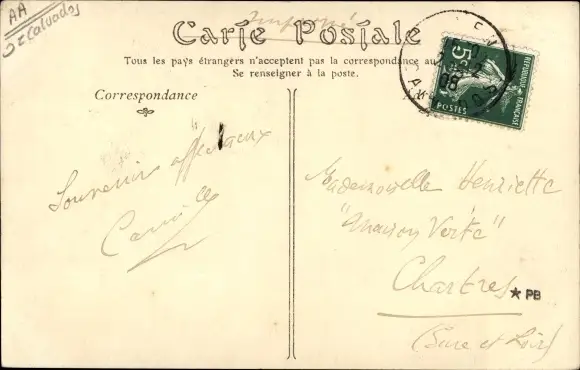 AA
Calvados
Imprimé
Carte Postale
Tous les pays étrangers n'acceptent pas la correspondance au
Se renseigner à la poste.
Correspondance
Souvenirs affectueux
Camille
5c
POSTES
REPUBLIQUE FRANÇAISE
08
Mademoiselle Henriette
"Maison Verte"
Chartres
PB
(Eure et Loir)